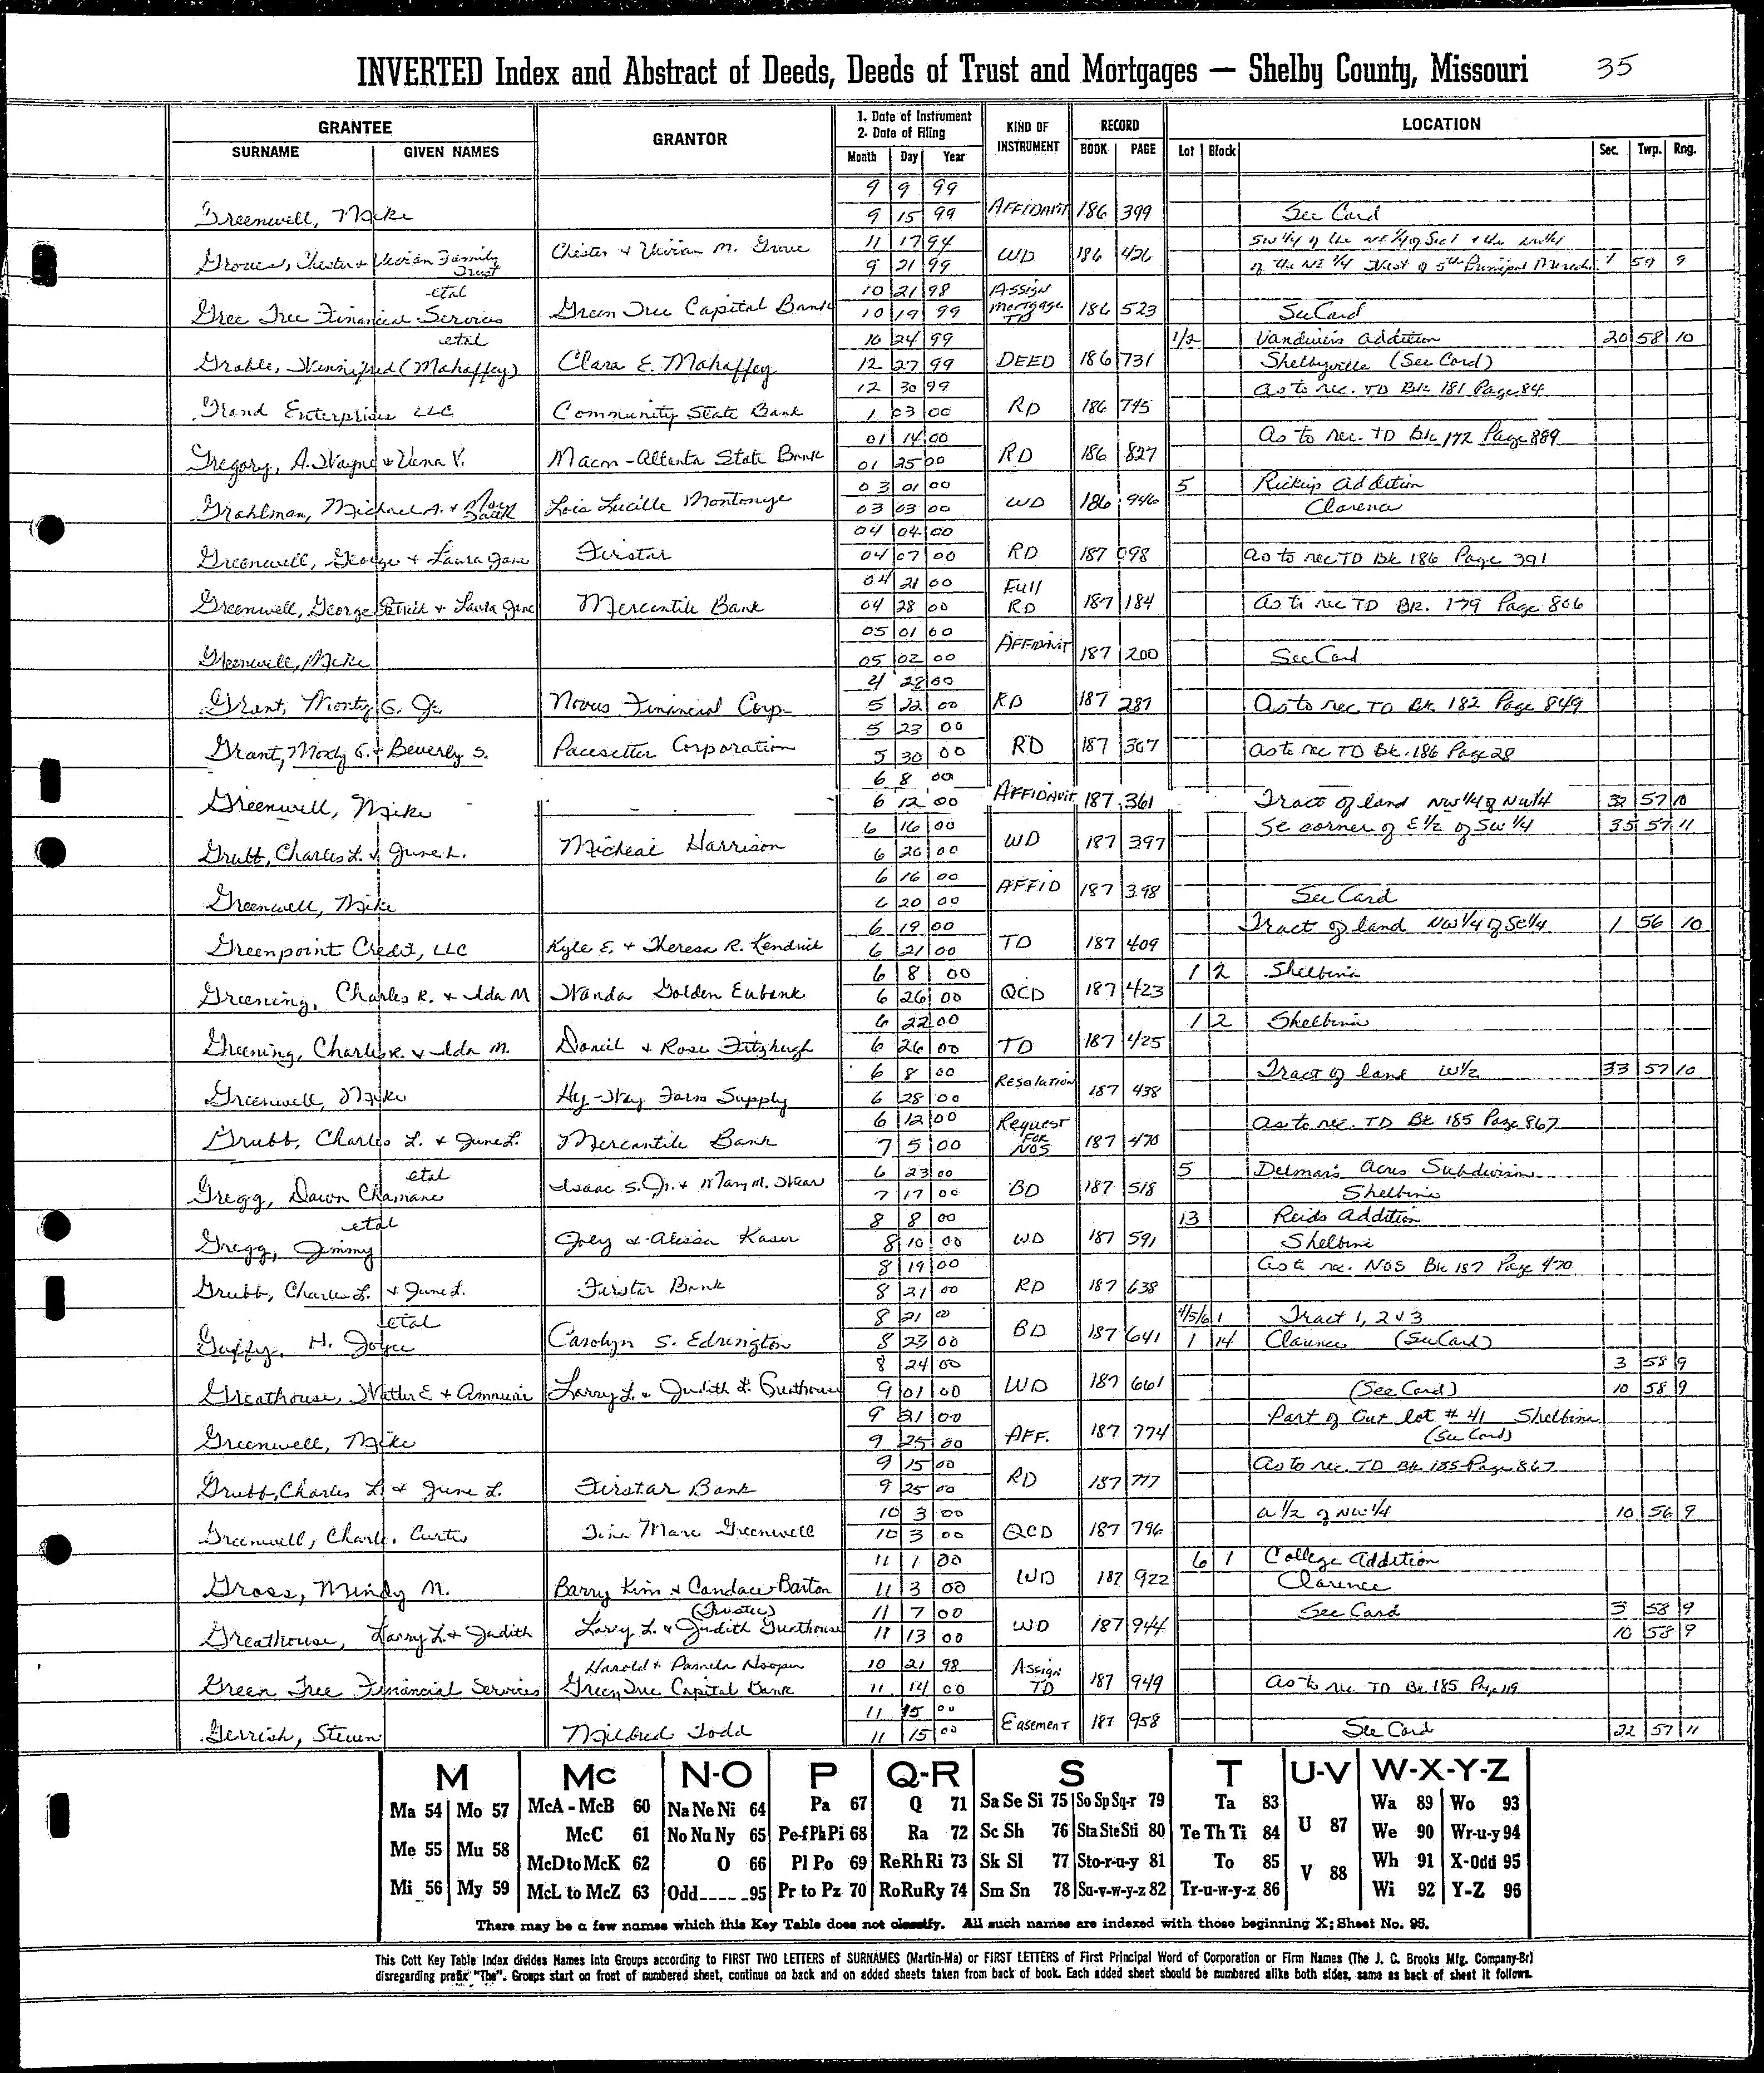 INVERTED Index and Abstract of Deeds, Deeds of Trust and Mortgages — Shelby County, Missouri 35
GRANTEE GRANTOR 1. Date of Instrument 2. Date of Filing KIND OF INSTRUMENT RECORD LOCATION
SURNAME GIVEN NAMES Month Day Year BOOK PAGE Lot Block Sec. Twp. Rng.
9 9 99
Greenwell, Mike 9 15 99 AFFIDAVIT 186 399 See Card
Chester & Vivian M. Grove 11 17 94 WD 186 426 SW 1/4 of the NE 1/4 of Sec 1 & the
Groves, Chester & Vivian Family Trust 9 21 99 of the NE 1/4 West of 5th Principal 1 59 9
etal 10 21 98 Assign
Gree Tree Financial Services Green Tree Capital Bank 10 19 99 Mortgage TD 186 523 See Card
etal 10 24 99 1/2 Vandivers Addition 20 58 10
Grable, Winnifred (Mahaffey) Clara E. Mahaffey 12 27 99 DEED 186 731 Shelbyville (See Card)
12 30 99 As to rec. TD Bk 181 Page 84
Grand Enterprises LLC Community State Bank 1 03 00 RD 186 745
01 14 00 As to rec. TD Bk 172 Page 889
Gregory, A. Wayne & V. Macon-Atlanta State Bank 01 25 00 RD 186 827
03 01 00 5 Addition
Grohlman, Michael A. & Lois Lucille Montonye 03 03 00 WD 186 946 Clarence
04 04 00
Greenwell, George & Laura Jane Firstar 04 07 00 RD 187 098 As to rec TD Bk 186 Page 391
04 21 00 Full
Greenwell, George Patrick & Laura Jane Mercantile Bank 04 28 00 RD 187 184 As to rec TD Bk. 179 Page 806
05 01 00
Greenwell, Mike 05 02 00 AFFIDAVIT 187 200 See Card
4 28 00
Grant, Monty G. Jr. Novus Financial Corp. 5 22 00 RD 187 287 As to rec TD Bk 182 Page 849
5 23 00
Grant, Monty G. & Beverly S. Pacesetter Corporation 5 30 00 RD 187 307 As to rec TD Bk. 186 Page 28
6 8 00
Greenwell, Mike 6 12 00 AFFIDAVIT 187 361 Tract of land NW 1/4 of NW 1/4 32 57 10
6 16 00 SE corner of E 1/2 of SW 1/4 35 57 11
Grubb, Charles L. & June L. Micheal Harrison 6 20 00 WD 187 397
6 16 00
Greenwell, Mike 6 20 00 AFFID 187 398 See Card
6 19 00 Tract of land NW 1/4 of SE 1/4 1 56 10
Greenpoint Credit, LLC Kyle E. & Theresa R. Kendrick 6 21 00 TD 187 409
6 8 00 1 2 Shelbina
Greening, Charles R. & Ida M Wanda Golden Eubank 6 26 00 QCD 187 423
6 22 00 1 2 Shelbina
Greening, Charles R. & Ida M. Daniel & Rose Fitzhugh 6 26 00 TD 187 425
6 8 00 Tract of land W 1/2 33 57 10
Greenwell, Mike Hy-Way Farm Supply 6 28 00 Resolution 187 438
6 12 00 Request As to rec. TD Bk 185 Page 867
Grubb, Charles L. & June L. Mercantile Bank 7 5 00 FOR NOS 187 470
etal 6 23 00 5 Delmar's Acres Subdivision
Gregg, Dawn Charmane Isaac S. Jr. & Mary M. Wear 7 17 00 BD 187 518 Shelbina
etal 8 8 00 13 Reids Addition
Gregg, Jimmy Joey & Alissa Kaser 8 10 00 WD 187 591 Shelbina
8 19 00 As to rec. NOS Bk 187 Page 470
Grubb, Charles L. & June L. Firstar Bank 8 21 00 RD 187 638
etal 8 21 00 4/5/6 1 Tract 1, 2 & 3
Guffy, H. Joyce Carolyn S. Edrington 8 23 00 BD 187 641 1 14 Clarence (See Card)
8 24 00 3 58 9
Greathouse, Walter E & Larry L. & Judith L. Greathouse 9 01 00 WD 187 661 (See Card) 10 58 9
9 21 00 Part of Out lot # 41 Shelbina
Greenwell, Mike 9 25 00 AFF. 187 774 (See Card)
9 15 00 As to rec. TD Bk 185 Page 867
Grubb, Charles L. & June L. Firstar Bank 9 25 00 RD 187 777
10 3 00 1/2 of NW 1/4 10 56 9
Greenwell, Curtis Marc Greenwell 10 3 00 QCD 187 796
11 1 00 6 1 College Addition
Gross, Mindy M. Barry Kim & Candace Barton 11 3 00 WD 187 922 Clarence
(Trustee) 11 7 00 See Card 3 58 9
Greathouse, Larry L. & Judith Larry L. & Judith Greathouse 11 13 00 WD 187 944 10 58 9
Harold & Pamela Hooper 10 21 98 Assign
Green Tree Financial Services Green Tree Capital Bank 11 14 00 TD 187 949 As to rec TD Bk 185 Page 119
11 15 00
Gerrish, Steven Mildred Todd 11 15 00 Easement 187 958 See Card 22 57 11
M Mc N-O P Q-R S T U-V W-X-Y-Z
Ma 54 Mo 57 McA - McB 60 Na Ne Ni 64 Pa 67 Q 71 Sa Se Si 75 So Sp Sq-r 79 Ta 83 Wa 89 Wo 93
Me 55 Mu 58 McC 61 No Nu Ny 65 Pe-f Ph Pi 68 Ra 72 Sc Sh 76 Sta Ste Sti 80 Te Th Ti 84 U 87 We 90 Wr-u-y 94
McD to McK 62 O 66 Pl Po 69 Re Rh Ri 73 Sk Sl 77 Sto-r-u-y 81 To 85 V 88 Wh 91 X-Odd 95
Mi 56 My 59 McL to McZ 63 Odd-----95 Pr to Pz 70 Ro Ru Ry 74 Sm Sn 78 Su-v-w-y-z 82 Tr-u-w-y-z 86 Wi 92 Y-Z 96
There may be a few names which this Key Table does not classify. All such names are indexed with those beginning X; Sheet No. 95.
This Cott Key Table Index divides Names into Groups according to FIRST TWO LETTERS of SURNAMES (Martin-Ma) or FIRST LETTERS of First Principal Word of Corporation or Firm Names (The J. C. Brooks Mfg. Company-Br)
disregarding prefix "The". Groups start on front of numbered sheet, continue on back and on added sheets taken from back of book. Each added sheet should be numbered alike both sides, same as back of sheet it follows.